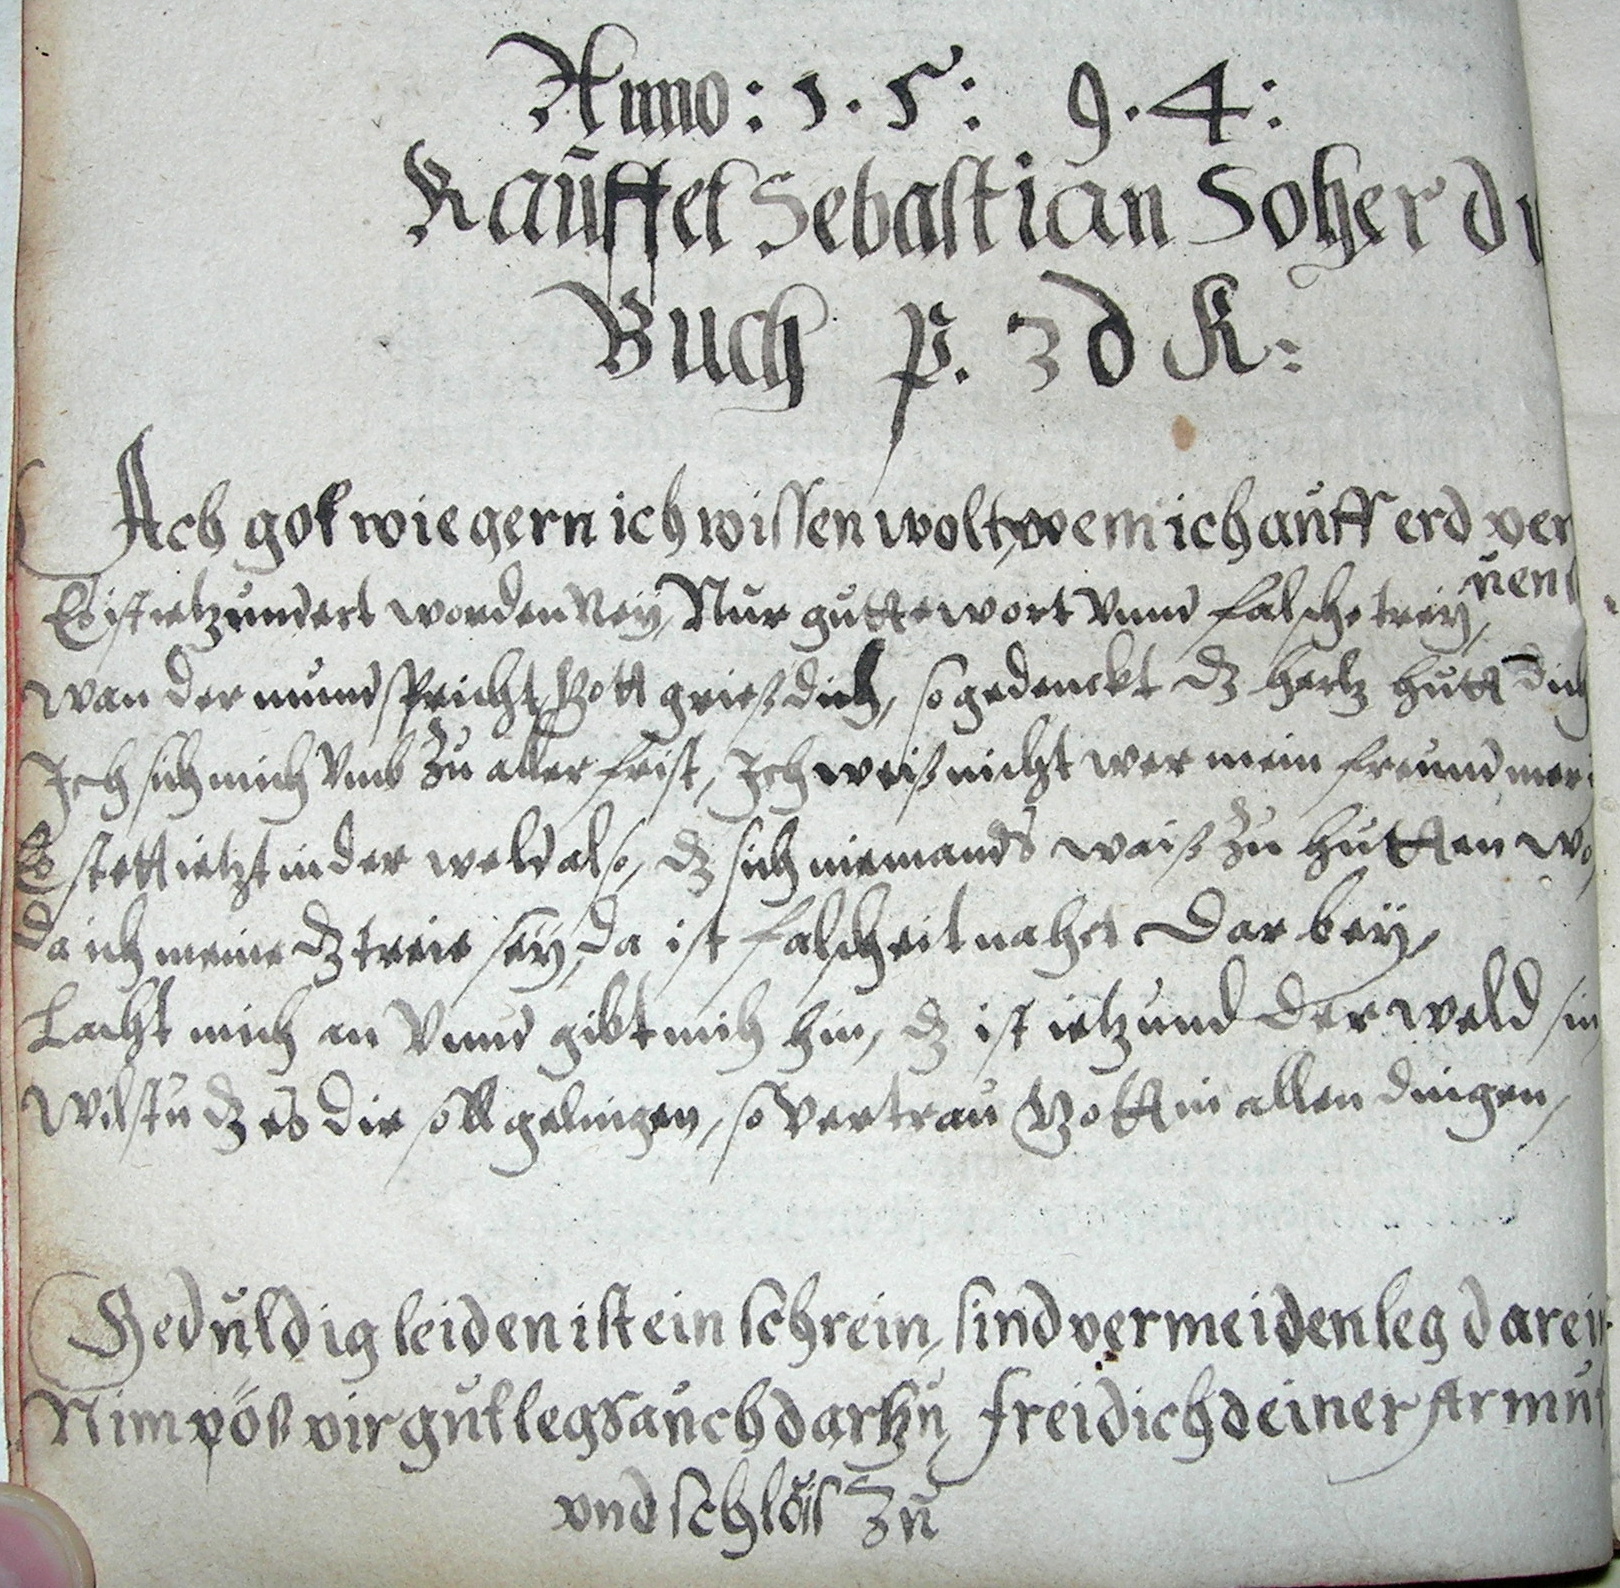 Anno: 1. 5: 9. 4:
Kauffet Sebastian Soher d
Buch p. 3 d K:
Ach got wie gern ich wissen wolt, wem ich auff erd ver
uen
Es ist ietzundert worden Ney, Nur gutte wort Vnnd falsche trey,
wan der mund spricht Gott grieß dich, so gedenckt dz hertz hutt dich
Ich sich mich Vmb zu aller frist, Ich weiß nicht wer mein freund mer
Es stett ietzt in der weld also, dz sich niemands waiß zu hutten wo
Da ich meine dz treie sey, da ist falscheit nahet Dar bey,
Lacht mich an Vnnd gibt mich hin, dz ist ietzund Der weld sin
wilstu dz es dir soll gelingen, so Vertrau Gott in allen dingen,
Geduldig leiden ist ein schrein, sind vermeiden leg darein
Nim pöß vir gut legs auch dartzu, frei dich deiner Armut
vnd schlois zu